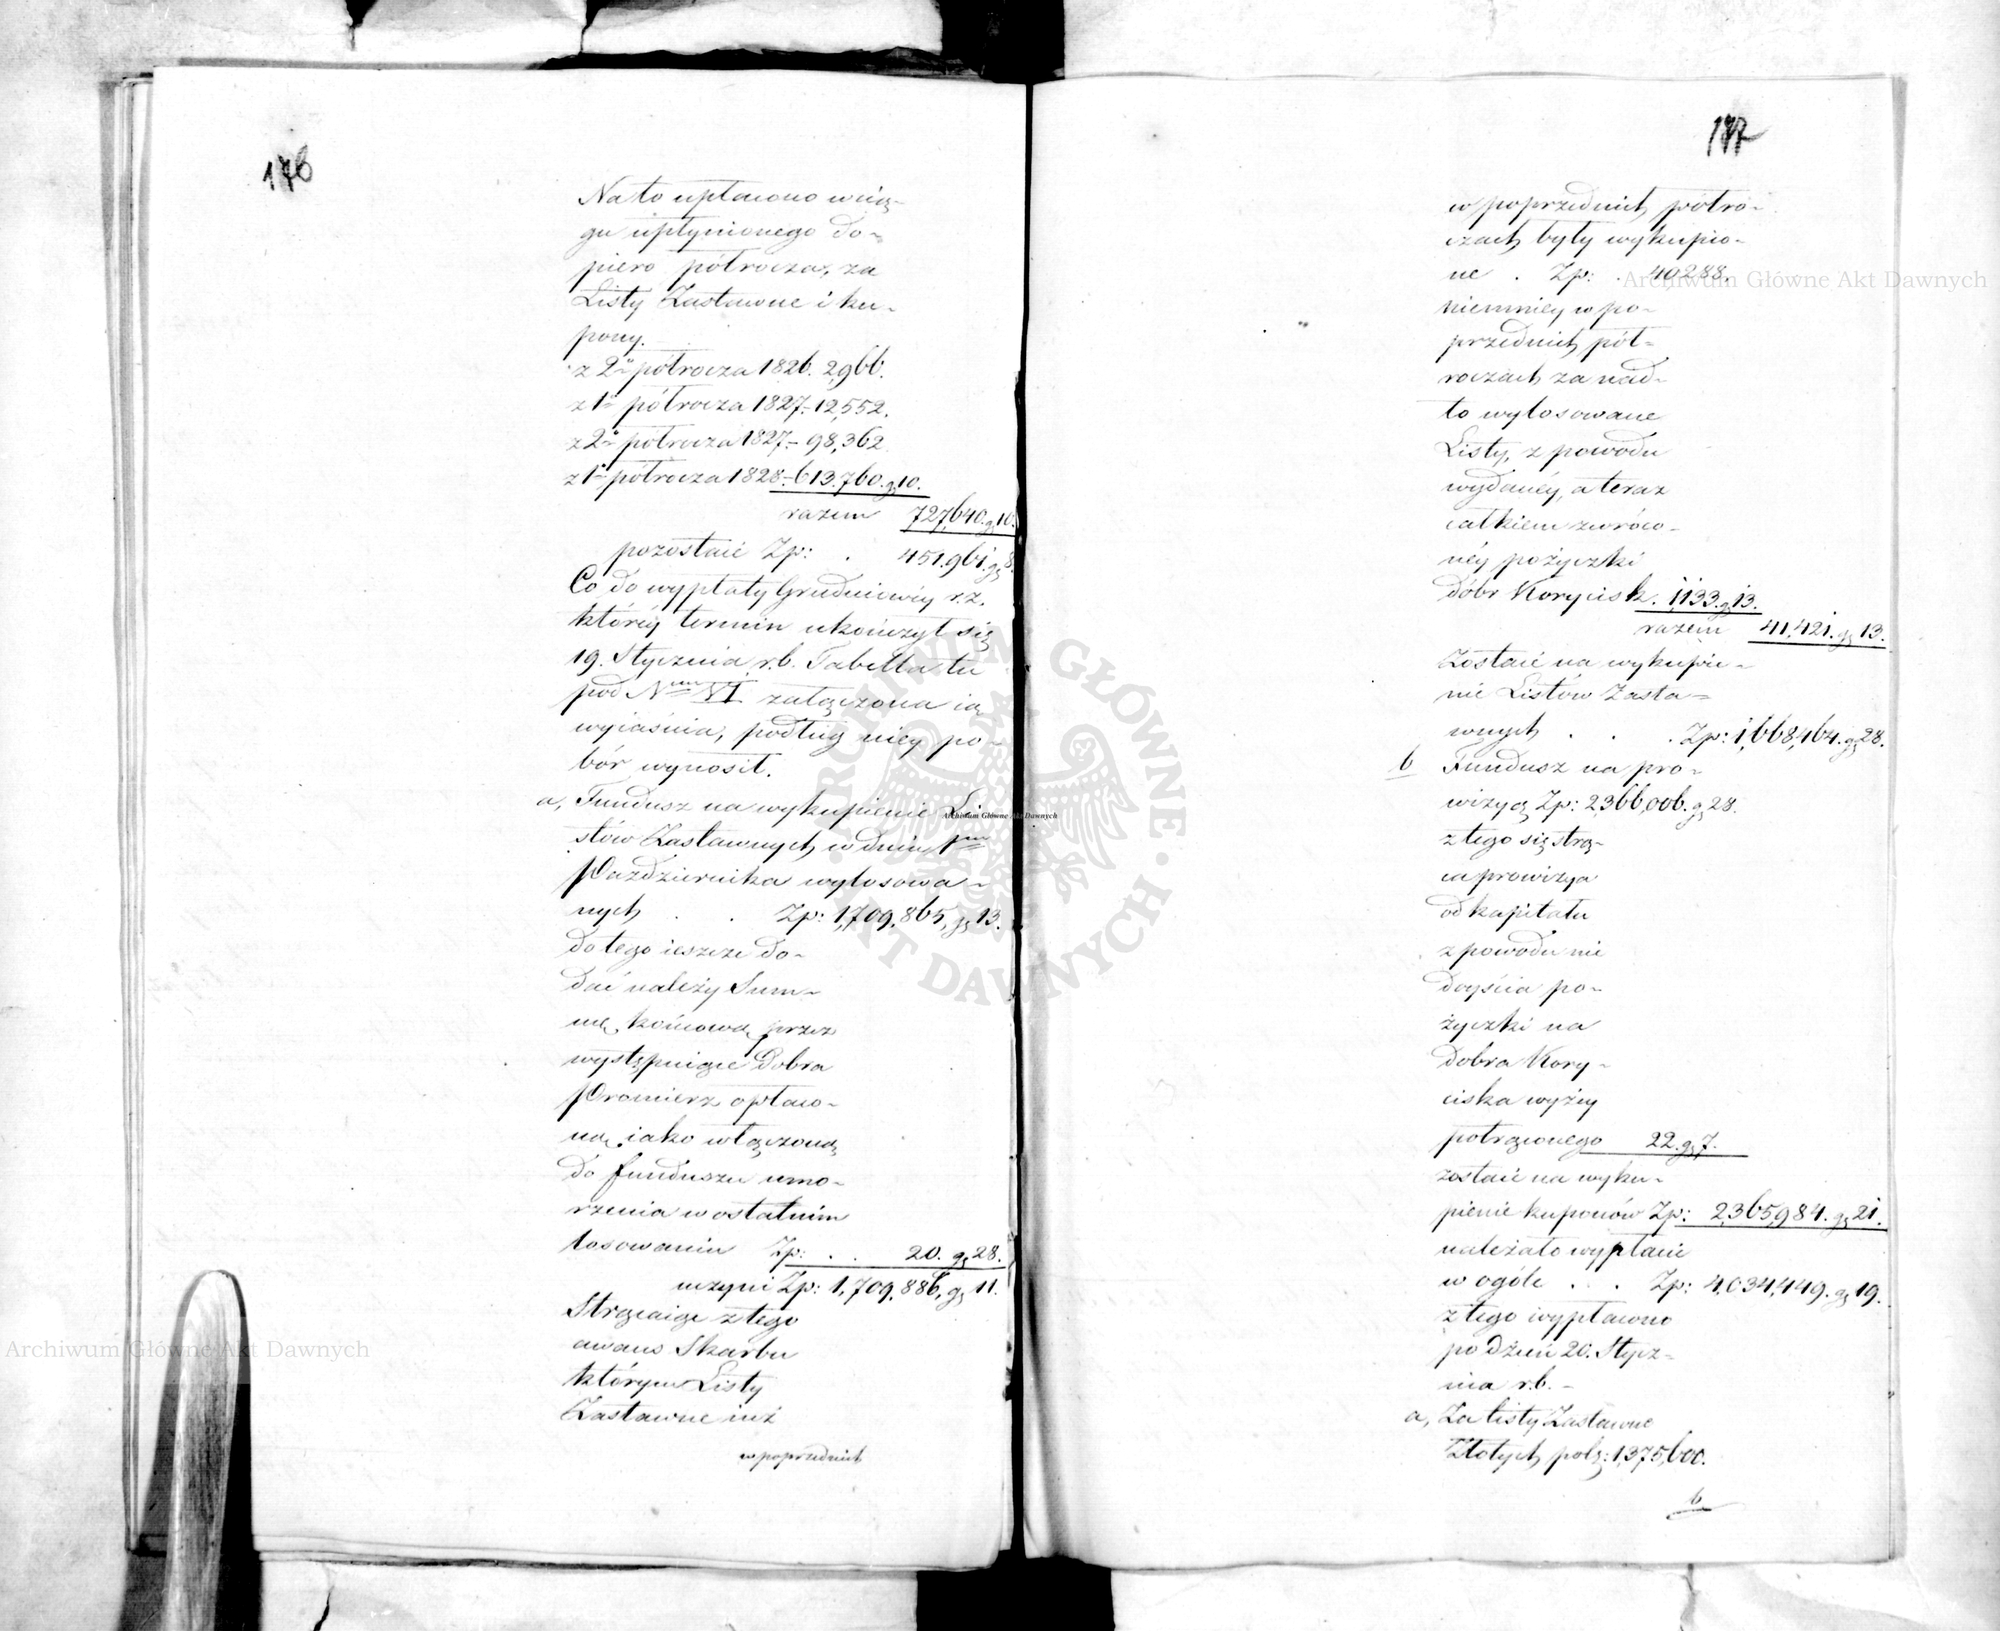 176
Na to upłacono w cią-
gu upłynionego do-
piero półrocza, za
Listy Zastawne i ku-
pony.
z 2º półrocza 1826. 2,966.
z 1º półrocza 1827.- 12,552.
z 2º półrocza 1827.- 98,362.
z 1º półrocza 1828.- 613,760. gs 10.
razem 727,640. gs 10.
pozostaie Zp: . 451,961. gs 8.
Co do wypłaty Grudniowéy r.z.
któréy termin ukończył się
19. Stycznia r.b. Tabella tu
pod Nrem VI załączona ią
wyiaśnia, podług niéy po-
bór wynosił.
a, Fundusz na wykupienie Li-
stów Zastawnych w dniu 1m
Października wylosowa-
nych . . Zp: 1,709,865, gs 13.
do tego ieszcze do-
dać należy Sum-
mę końcową przez
występuiące Dobra
Promierz opłaco-
ną, iako włączoną
do funduszu umo-
rzenia w ostatnim
losowaniu Zp: . . 20. gs 28.
uczyni Zp: 1,709,886, gs 11.
Strącaiąc z tego
awans Skarbu
którym Listy
Zastawne iuż
w poprzednich
177
w poprzednich półro-
czach były wykupio-
ne . Zp: . 40,288,
niemniéy w po-
przednich pół-
roczach za nad-
to wylosowane
Listy, z powodu
wydanéy, a teraz
całkiem zwróco-
néy pożyczki
dóbr Korycisk. 1,133. gs 13.
razem 41,421. gs 13.
Zostaie na wykupie-
nie Listów Zasta-
wnych . . . Zp: 1,668,464. gs 28.
b Fundusz na pro-
wizyą Zp: 2,366,006. gs 28.
z tego się strą-
ca prowizya
od kapitału
z powodu nie
doyścia po-
życzki na
dobra Kory-
ciska wyżéy
potrąconego 22. gs 7.
zostaie na wyku-
pienie kuponów Zp: 2,365,984. gs 21.
należało wypłacić
w ogóle . . Zp: 4,034,449. gs 19.
z tego wypłacono
po dzień 20. Stycz-
nia r.b. -
a, Za listy Zastawne
Złotych pols: 1,375,600.
b
Archiwum Główne Akt Dawnych
Archiwum Główne Akt Dawnych
Archiwum Główne Akt Dawnych
ARCHIWUM GŁÓWNE · AKT DAWNYCH ·